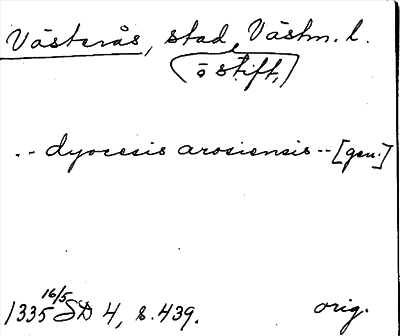 Västerås, stad, Västm. l.
(ö stift,)
.. dyocesis arosiensis -- [gen.]
1335 16/5 SD 4, s. 439. orig.